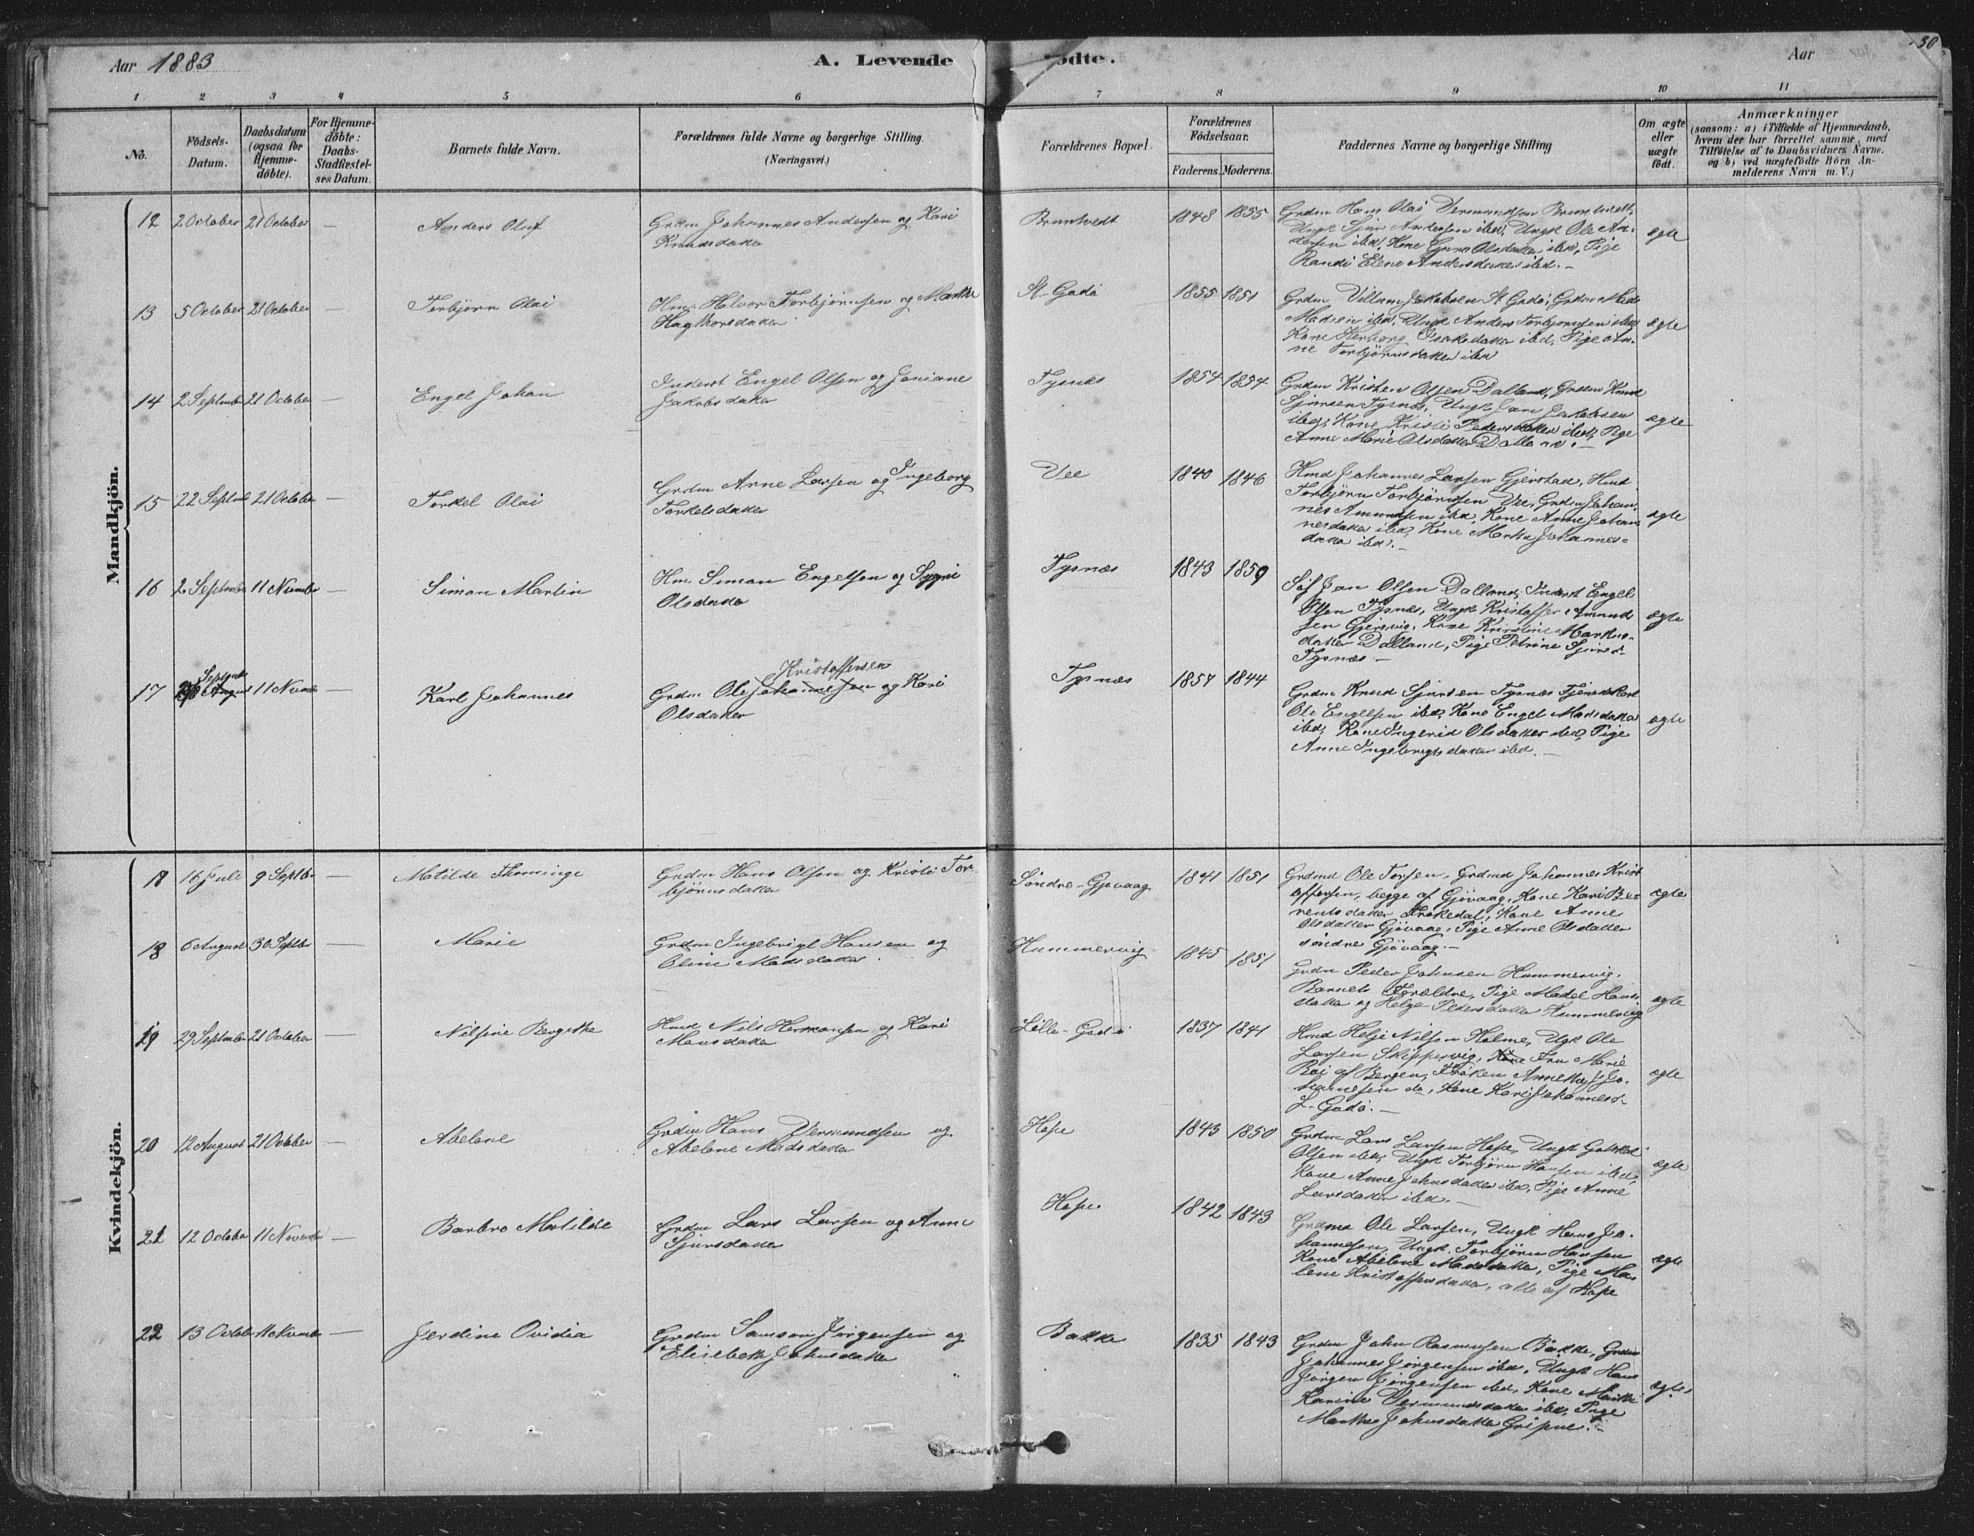 Aar 1883
A. Levende
födte.
Aar
30
1 2 3 4 5 6 7 8 9 10 11
No.
Födsels-
Datum.
Daabsdatum
(ogsaa for
Hjemme-
döbte).
For Hjemme-
döbte:
Daabs-
Stadfæstel-
ses Datum.
Barnets fulde Navn.
Forældrenes fulde Navne og borgerlige Stilling.
(Næringsvei.)
Forældrenes Bopæl.
Forældrenes
Födselsaar.
Faderens.
Moderens.
Faddernes Navne og borgerlige Stilling
Om ægte
eller
uægte
födt.
Anmærkninger
(saasom: a) i Tilfælde af Hjemmedaab,
hvem der har forrettet samme, med
Tilföielse af to Daabsvidners Navne.
og b) ved uægtefödte Börn An-
melderens Navn m. V.)
Mandkjön.
12 2 October 21 October — Anders Oluf
Grdm Johannes Andersen og Kari
Knudsdatter
Bruntvedt 1848 1855
Grdm Hans Olai Vermundsen Bruntvedt,
Ungk Sjur Andersen ibd, Ungk Ole An-
dersen ibd, Kone Guro Olsdatter ibd, Pige
Randi Elene Andersdatter ibd. —
ægte
13 5 October 21 October — Torbjörn Olai
Hm. Halvor Torbjörnsen og Marthe
Hagthorsdatter
St. Godö 1855 1851
Grdm Villam Jakobsen St Godö, Grdm Mads
Madsen ibd, Ungk Anders Torbjörnsen ibd,
Kone Herborg Isaksdatter ibd, Pige An-
ne Torbjörnsdatter ibd
ægte
14 2 Septmber 21 October — Engel Johan
Inderst Engel Olsen og Joniane
Jakobsdatter
Tysnæs 1854 1854
Grdm Kristen Olsen Dalland, Grdm Knud
Sjursen Tysnæs, Ungk Jan Jakobsen
ibd, Kone Kristi Pedersdatter ibd, Pige
Anne Marie Olsdatter Dalland. —
ægte
15 22 Septmb 21 October — Torkel Olai
Grdm Arne Larsen og Ingeborg
Torkelsdatter
Vee 1840 1846
Hmd Johannes Larsen Gjerstad, Hmd
Torbjörn Torbjörnsen Vee, Grdm Johan-
nes Amundsen ibd, Kone Anne Johan-
nesdatter ibd, Kone Marthe Johannes-
datter ibd. —
ægte
16 2 Septmber 11 November — Simon Martin
Hm. Simon Engelsen og Sygni
Olsdatter
Tysnæs 1843 1850
Söf Jan Olsen Dalland, Inderst Engel
Olsen Tysnæs, Ungk Kristoffer Amund-
sen Gjersvig, Kone Kristine Markus-
datter Dalland, Pige Petrine Sjursd.
Tysnæs —
ægte
17 Septmb
August 11 Novem — Karl Johannes
Kristoffersen
Grdm Ole Johannesen og Kari
Olsdatter
Tysnæs 1857 1844
Grdm Knud Sjursen Tysnæs, Tjenestkarl
Ole Engelsen ibd, Kone Engel Marsdatter
ibd, Kone Ingerid Olsdatter ibd, Pige
Anne Ingebrigtsdatter ibd. —
ægte
Kvindekjön.
17 16 Juli 9 Septber — Matilde Thominge
Grdm Hans Olsen og Kristi Tor-
björnsdatter
Söndre-Gjövaag 1841 1851
Grdmd Ole Torsen, Grdmd Johannes Krist-
offersen, begge af Gjövaag, Kone Kari Be-
rentsdatter Trækedal, Kone Anne
Olsdatter Gjövaag, Pige Anne Olsdatter
söndre Gjövaag. —
ægte
18 6 August 30 Septbr — Marie
Grdm Ingebrigt Hansen og
Oline Madsdatter.
Hummervig 1845 1851
Grdm Peder Johnsen Hummervig,
Barnets Forældre, Pige Madel Hans-
datter og Helga Pedersdatter Hummervig
ægte
19 29 Septmber 21 October — Nilsine Bergitte
Hmd Nils Hermansen og Kari
Monsdatter
Lille-Godö 1837 1841
Hmd Helje Nilsen Holme, Ugk Ole
Larsen Skippervig, Kone Fru Marie
Boi af Bergen, Fröken Annethe Jo-
hannesen do, Kone Kari Johannesd.
L-Godö. —
ægte
20 12 August 21 October — Abelone
Grdm Hans Vermundsen og
Abelone Madsdatter
Hope 1843 1850
Grdm Lars Larsen Hope, Ungk Gotskal
Olsen ibd, Ungk Torbjörn Hansen ibd,
Kone Anne Johnsdatter ibd, Pige Anne
Larsdatter ibd. —
ægte
21 12 October 11 Novem — Barbro Matilde
Grdm Lars Larsen og Anne
Sjursdatter
Hope 1842 1843
Grdmd Ole Larsen, Ungk Hans Jo-
hannesen, Ungk Torbjörn Hansen
Kone Abelone Madsdatter, Pige Ma-
lene Kristoffersdatter, alle af Hope
ægte
22 13 Octob 11 Novem — Jerdine Ovidia
Grdm Samson Jörgensen og
Elisebeth Johnsdatter
Bakke 1835 1843
Grdm John Rasmusen Bakke, Grdm
Johannes Jörgensen ibd, Ungk Hans
Jörgen Jörgensen ibd, Kone Marthe
Karine Vermundsdatter ibd, Pige
Marthe Johnsdatter Gripne. —
ægte